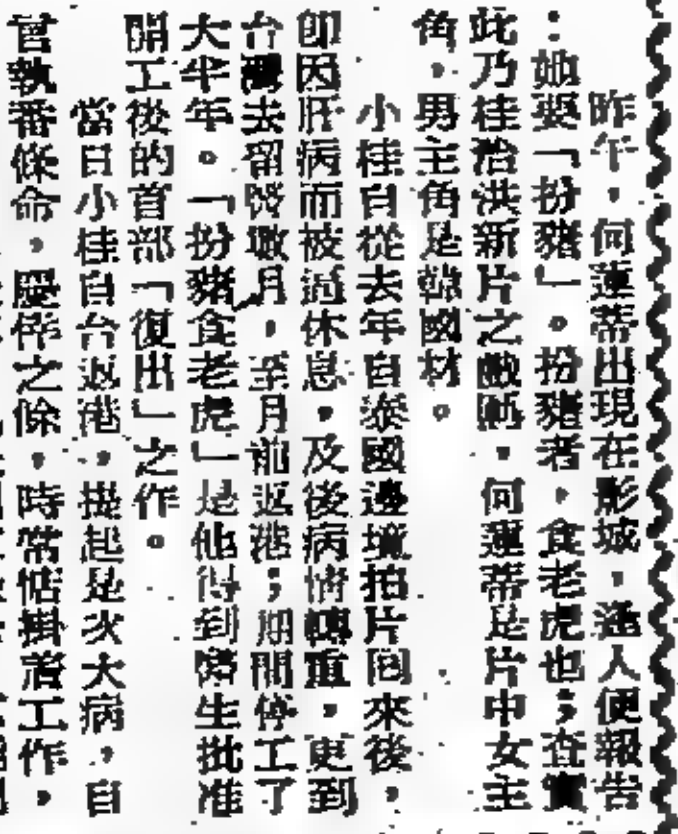 昨午，何蓮蒂出現在影城，逢人便報告
：她要「扮豬」。扮豬者，食老虎也；查實
此乃桂治洪新片之戲碼，何蓮蒂是片中女主
角，男主角是韓國材。
小桂自從去年自泰國邊境拍片回來後，
即因肝病而被迫休息，及後病情轉重，更到
台灣去留醫數月，至月前返港；期間停工了
大半年。「扮豬食老虎」是他得到醫生批准
開工後的首部「復出」之作。
當日小桂自台返港，提起是次大病，自
嘗執番條命，慶倖之餘，時常惦掛着工作，